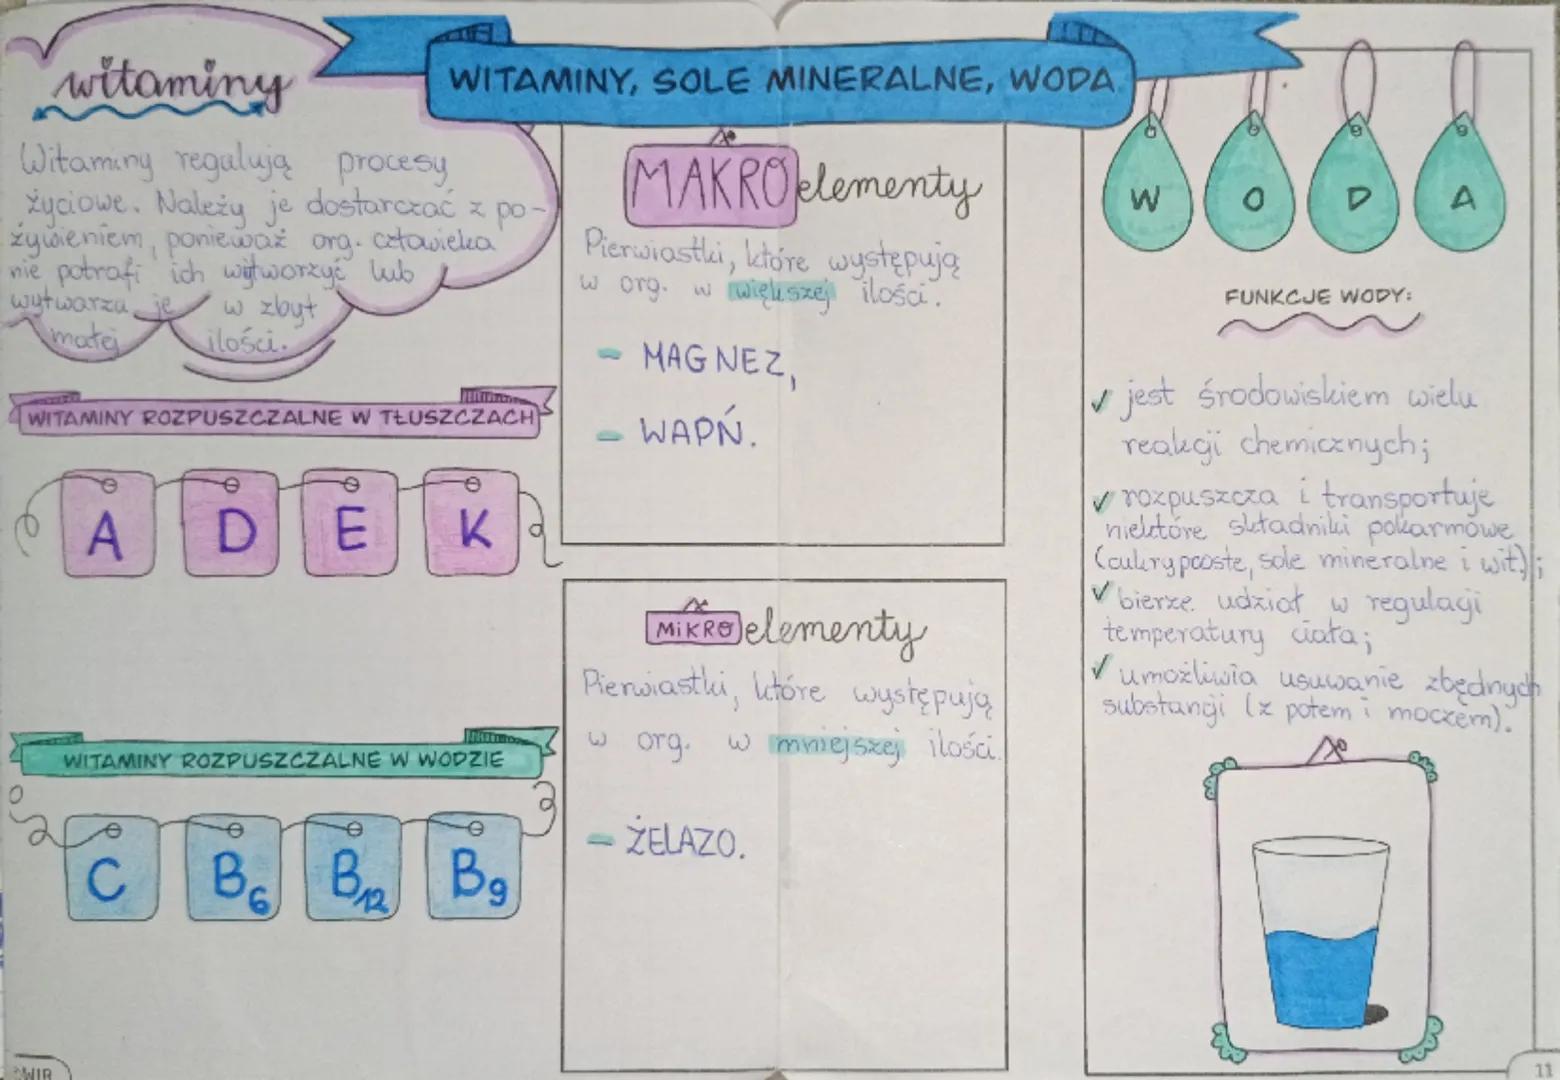 WITAMINY, SOLE MINERALNE, WODA
witaminy
Witaminy regulują procesy
życiowe. Należy je dostarczać z po-
żywieniem, ponieważ org. człowieka
nie potrafi ich wytworzyć lub
wytwarza je w zbyt
małej ilości.
WITAMINY ROZPUSZCZALNE W TŁUSZCZACH
A D E K
WITAMINY ROZPUSZCZALNE W WODZIE
C B6 B12 B9
MAKROelementy
Pierwiastki, które występują
w org. w większej ilości.
- MAGNEZ,
- WAPŃ.
MiKROelementy
Pierwiastki, które występują
w org. w mniejszej ilości.
- ŻELAZO.
W O D A
FUNKCJE WODY:
✓ jest środowiskiem wielu
reakcji chemicznych;
✓ rozpuszcza i transportuje
niektóre składniki pokarmowe
(cukry proste, sole mineralne i wit.);
✓ bierze udział w regulacji
temperatury ciała;
✓ umożliwia usuwanie zbędnych
substancji (z potem i moczem).
11